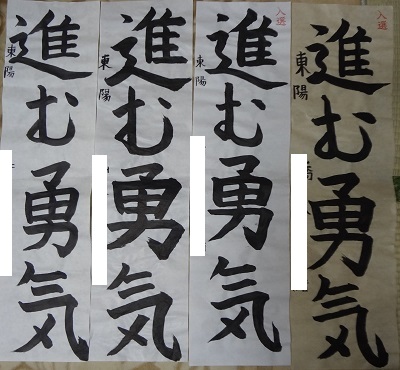 入選
進む勇気
東陽
入選
進む勇気
東陽
進む勇気
東陽
進む勇気
東陽